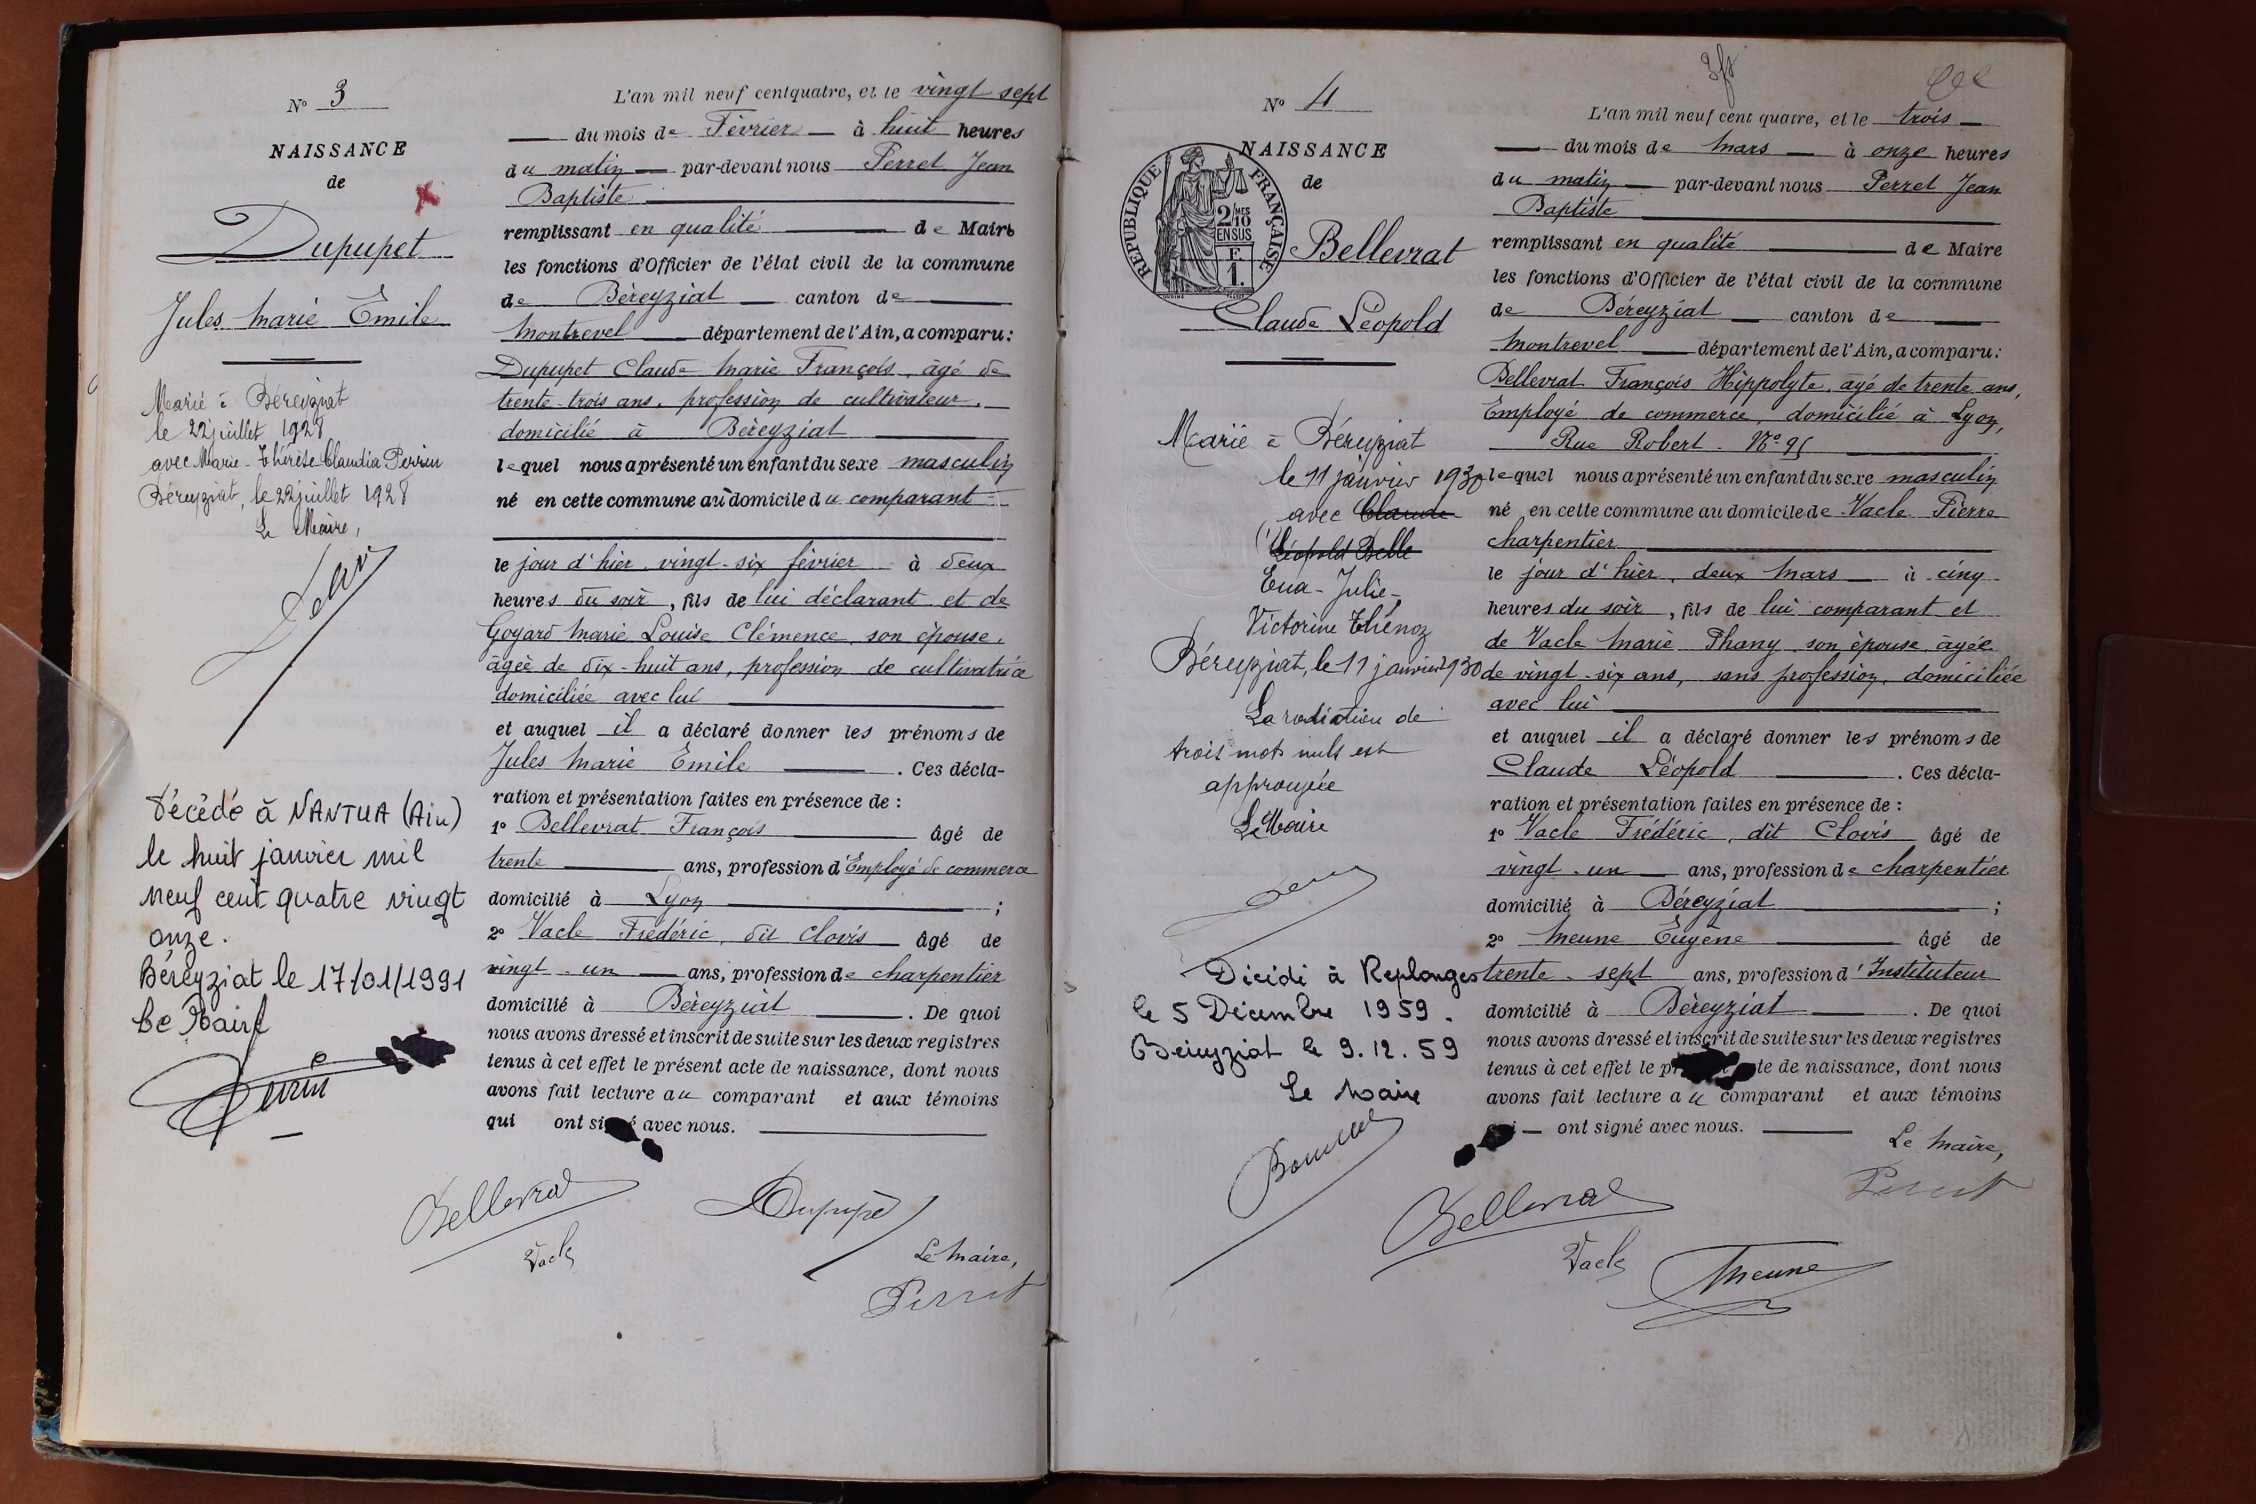 N° 3
NAISSANCE
de
Dupupet
Jules Marie Émile
Marié à Béréyziat
le 22 juillet 1928
avec Marie-Thérèse Claudia Perrin
Béreyziat, le 22 juillet 1928
Le Maire,
Décédé à NANTUA (Ain)
le huit janvier mil
neuf cent quatre vingt
onze.
Béreyziat le 17/01/1991
Le Maire
L'an mil neuf cent quatre, et le vingt sept
du mois de Février à huit heures
du matin par-devant nous Perret Jean
Baptiste
remplissant en qualité de Maire
les fonctions d'Officier de l'état civil de la commune
de Béreyziat canton de
Montrevel département de l'Ain, a comparu:
Dupupet Claude Marie François, âgé de
trente-trois ans, profession de cultivateur,
domicilié à Béreyziat
lequel nous a présenté un enfant du sexe masculin
né en cette commune au domicile du comparant
le jour d'hier vingt-six février à deux
heures du soir, fils de lui déclarant et de
Goyard Marie Louise Clémence, son épouse,
âgée de dix-huit ans, profession de cultivatrice
domiciliée avec lui
et auquel il a déclaré donner les prénoms de
Jules Marie Émile . Ces décla-
ration et présentation faites en présence de :
1° Bellevrat François âgé de
trente ans, profession d'Employé de commerce
domicilié à Lyon ;
2° Vacle Frédéric, dit Clovis âgé de
vingt-un ans, profession de charpentier
domicilié à Béreyziat . De quoi
nous avons dressé et inscrit de suite sur les deux registres
tenus à cet effet le présent acte de naissance, dont nous
avons fait lecture au comparant et aux témoins
qui ont signé avec nous.
Bellevrat
Dupupet
Vacle
Le Maire,
Perret
N° 4
NAISSANCE
de
RÉPUBLIQUE FRANÇAISE
2/10 MES
EN SUS
F
1.
Bellevrat
Claude Léopold
Marié à Béreyziat
le 11 janvier 1930
avec Claude
Léopold Belle
Eva-Julie-
Victorine Thénoz
Béreyziat, le 11 janvier 1930
La radiation de
trois mots nuls est
approuvée
Le Maire
Décédé à Replonges
le 5 Décembre 1959.
Béreyziat le 9.12.59
Le Maire
L'an mil neuf cent quatre, et le trois
du mois de Mars à onze heures
du matin par-devant nous Perret Jean
Baptiste
remplissant en qualité de Maire
les fonctions d'Officier de l'état civil de la commune
de Béreyziat canton de
Montrevel département de l'Ain, a comparu:
Bellevrat François Hippolyte, âgé de trente ans,
Employé de commerce, domicilié à Lyon,
Rue Robert. N° 95
lequel nous a présenté un enfant du sexe masculin
né en cette commune au domicile de Vacle Pierre
charpentier
le jour d'hier, deux Mars à cinq
heures du soir, fils de lui comparant et
de Vacle Marie Phany, son épouse, âgée
de vingt-six ans, sans profession, domiciliée
avec lui
et auquel il a déclaré donner les prénoms de
Claude Léopold . Ces décla-
ration et présentation faites en présence de :
1° Vacle Frédéric, dit Clovis âgé de
vingt-un ans, profession de charpentier
domicilié à Béreyziat ;
2° Meune Eugène âgé de
trente-sept ans, profession d'Instituteur
domicilié à Béreyziat . De quoi
nous avons dressé et inscrit de suite sur les deux registres
tenus à cet effet le te de naissance, dont nous
avons fait lecture au comparant et aux témoins
ont signé avec nous.
Le Maire,
Perret
Bellevrat
Vacle
Meune